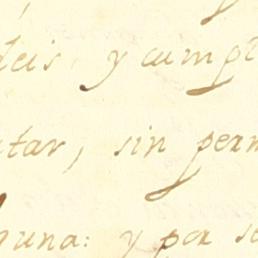 deis, y cumpl
tar, sin perm
guna: y por se